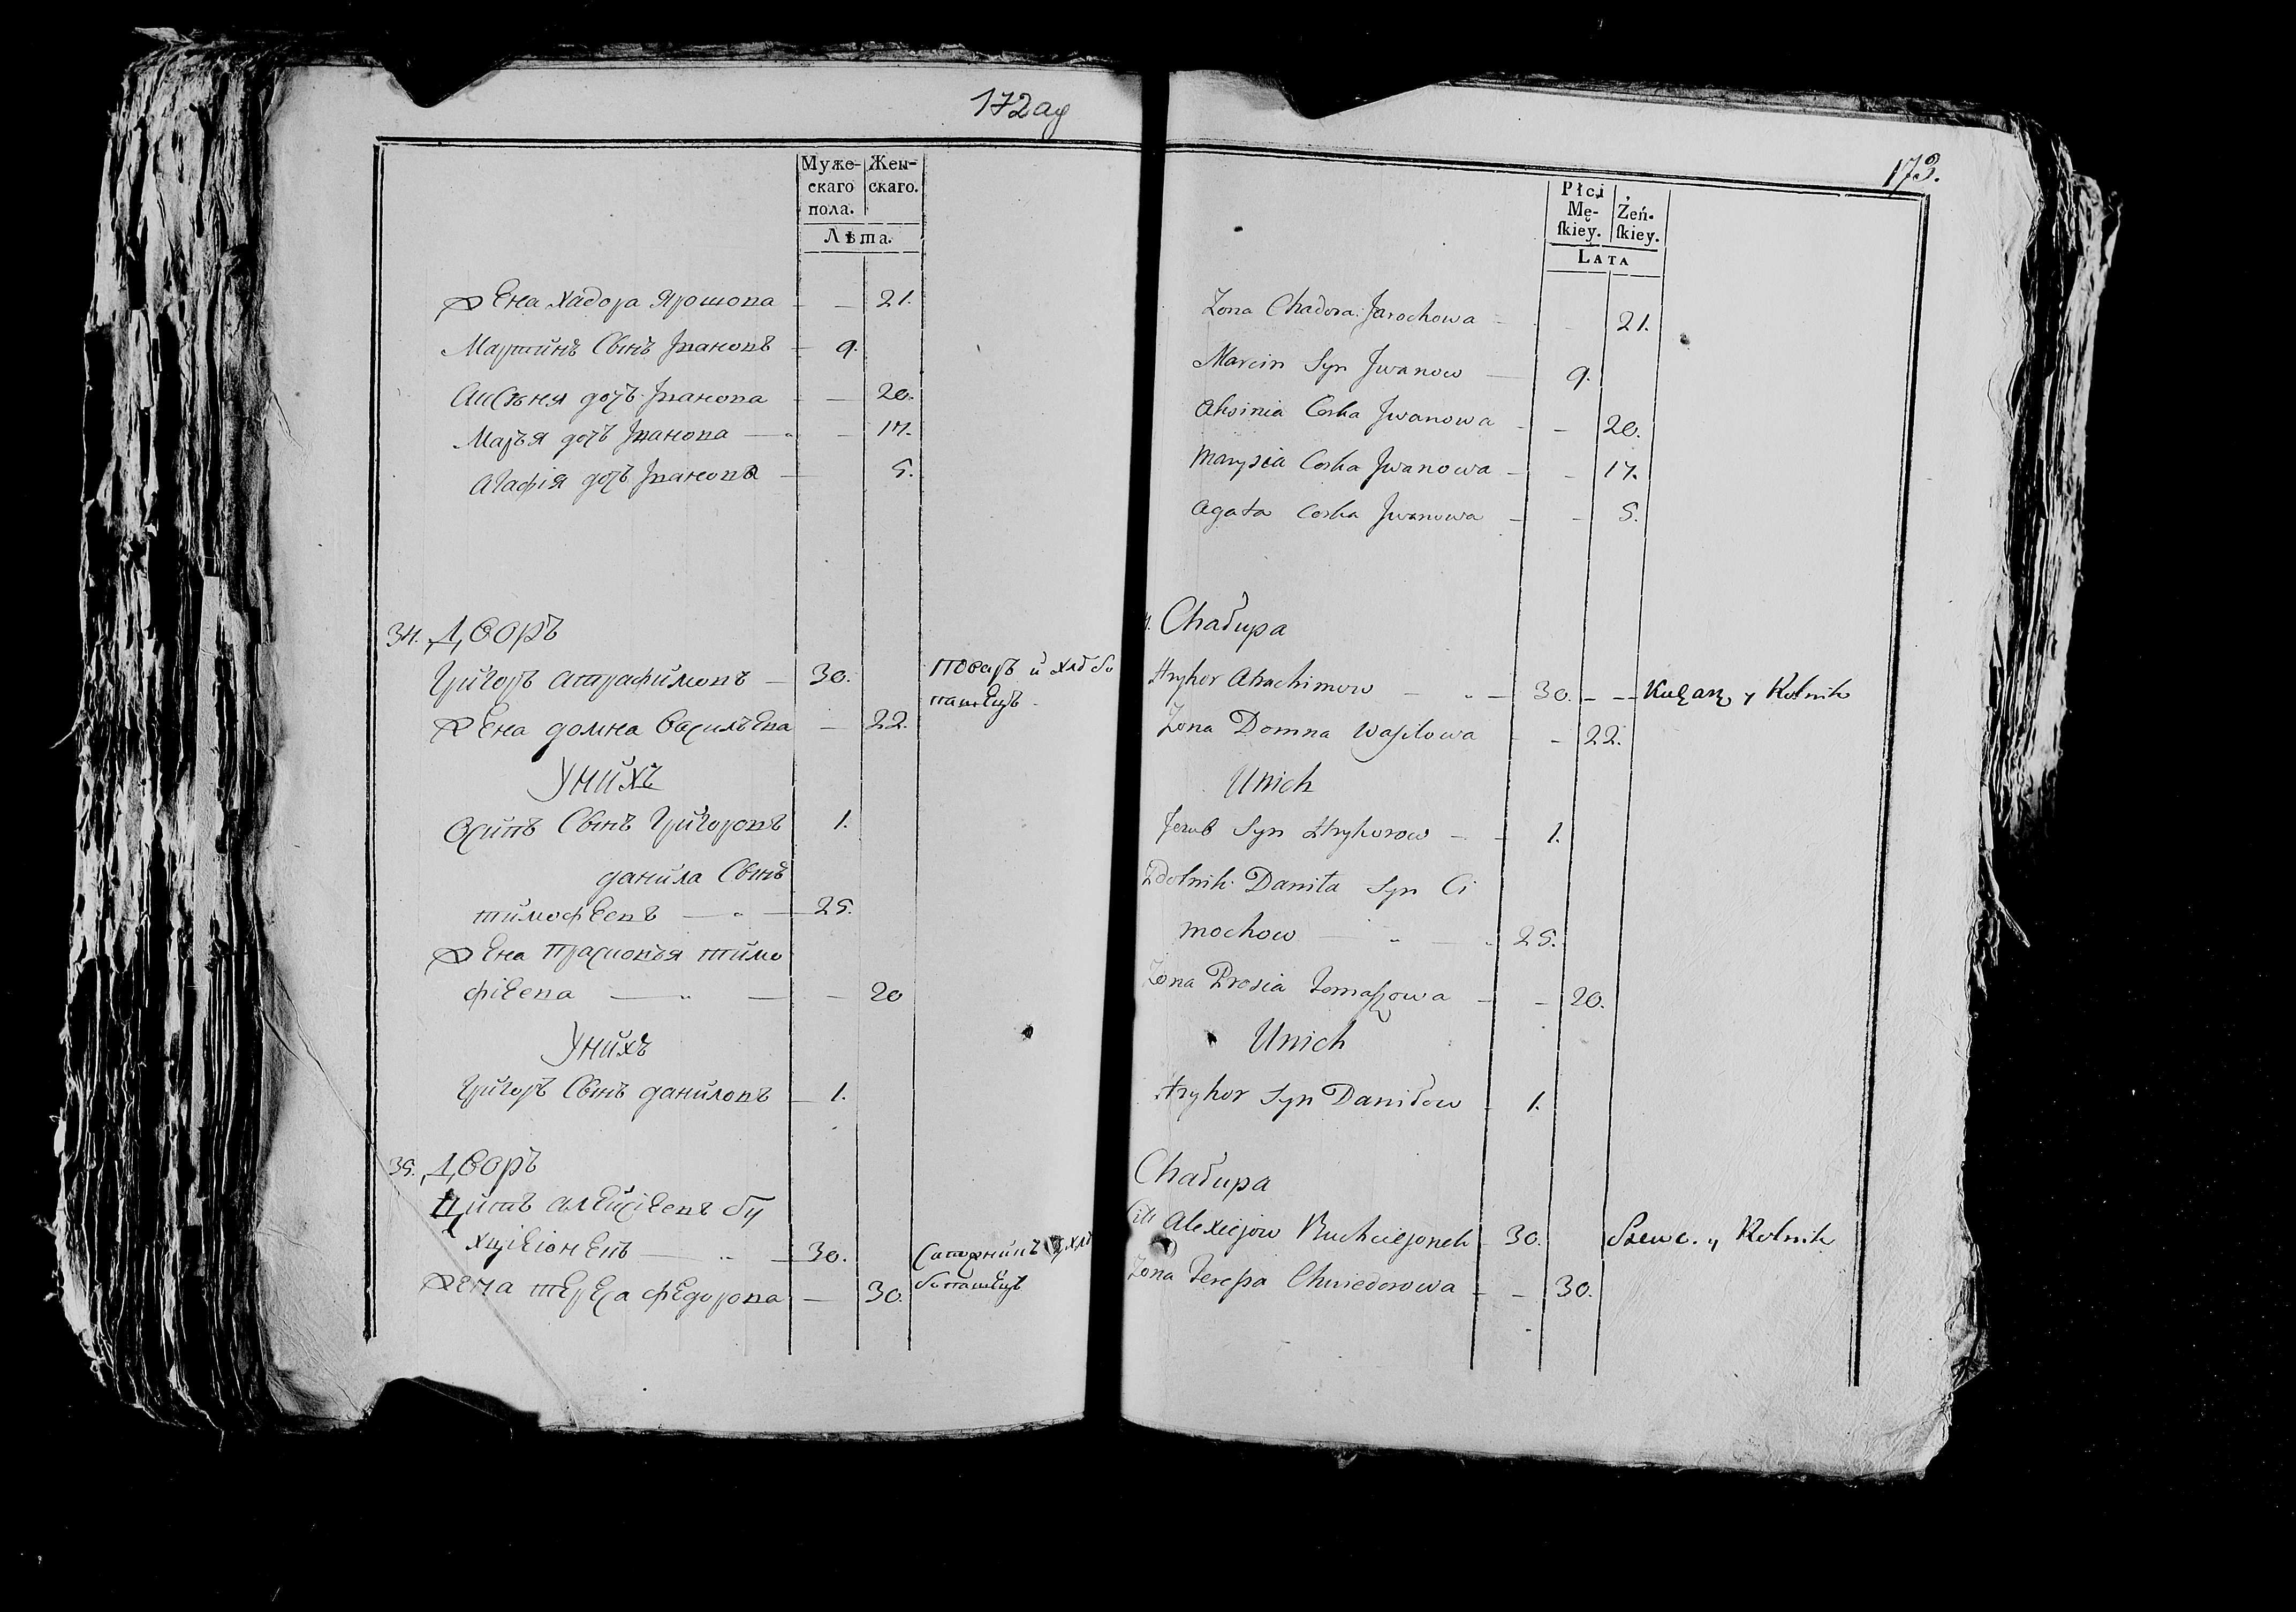 172ад
Муже-
скаго
пола.
Жен-
скаго.
Лѣта.
Жена Хадора Ярошова — 21.
Мартинъ Сынъ Івановъ — 9.
Аксѣня дочъ Іванова — 20.
Марья дочъ Іванова — 17.
Агафія дочъ Іванова — 5.
34. Дворъ
Григоръ Атрафимовъ — 30. Поваръ и хлѣбо
Жена домна Василъева — 22. пашецъ
Унихъ
Осипъ Сынъ Григоровъ 1.
данила Сынъ
тимофеевъ — 25.
Жена Прасковъя тимо
фіева — 20
Унихъ
Григоръ Сынъ даниловъ — 1.
35. Дворъ
Цитъ алексіевъ бу
хціеіонекъ — 30.
Жена тереса федорова — 30. бопашецъ
173.
Płci
Mę-
ſkiey.
Żeń-
ſkiey.
Lata
Zona Chadora Jarochowa — 21.
Marcin Syn Jwanow — 9.
Aksinia Corka Jwanowa — 20.
Marysia Corka Jwanowa — 17.
Agata Corka Jwanowa — 5.
Chałupa
Hryhor Atrachimow — 30. — Kucharz y Rolnik
Zona Domna Wasilowa — 22.
Unich
Jozub Syn Hryhorow — 1.
Zdolnik Daniła Syn Ci
mochow — 25.
Zona Prosia Tomaszowa — 20.
Unich
Hryhor Syn Daniłow 1.
Chałupa
Cit Alexiejow Buchciejonek 30. Szewc. y Rolnik
Zona Teressa Chwiedorowa — 30.